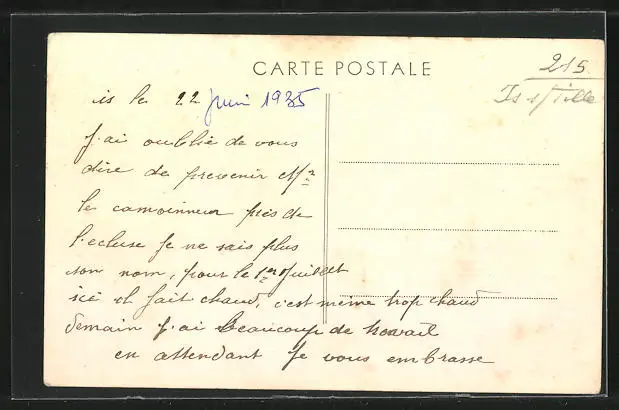 CARTE POSTALE
215
Is s/Tille
is le 22 juin 1935
J'ai oublié de vous
dire de prevenir Mr
le camionneur près de
l'ecluse je ne sais plus
son nom, pour le 1er Juillet
ici il fait chaud, c'est même trop chaud
demain j'ai beaucoup de travail
en attendant je vous embrasse